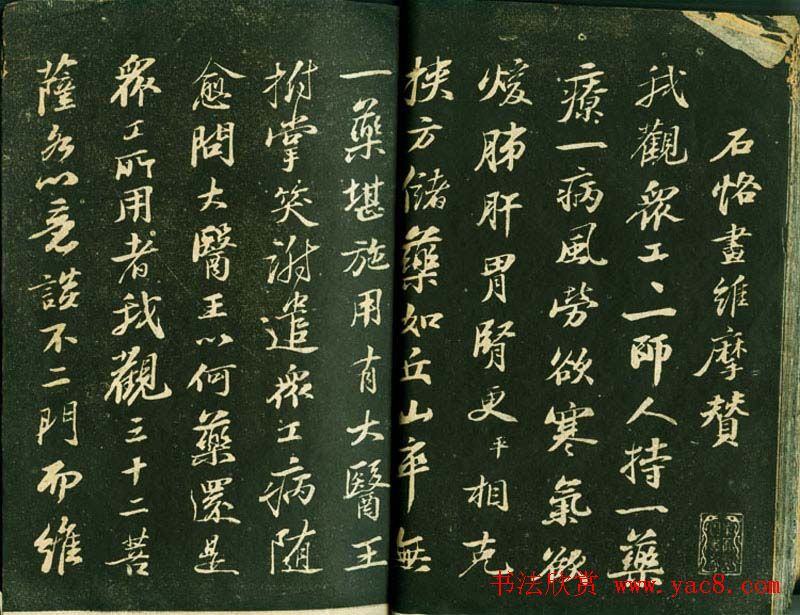 石恪畫維摩贊
我觀衆工〻一師人持一藥
療一病風勞欲寒氣欲
煖肺肝胃腎更平相克
挾方儲藥如丘山卒無
一藥堪施用有大醫王
拊掌笑謝遣衆工病隨
愈問大醫王以何藥還是
衆工所用者我觀三十二菩
薩各以意談不二門而維
书法欣赏 www.yac8.com